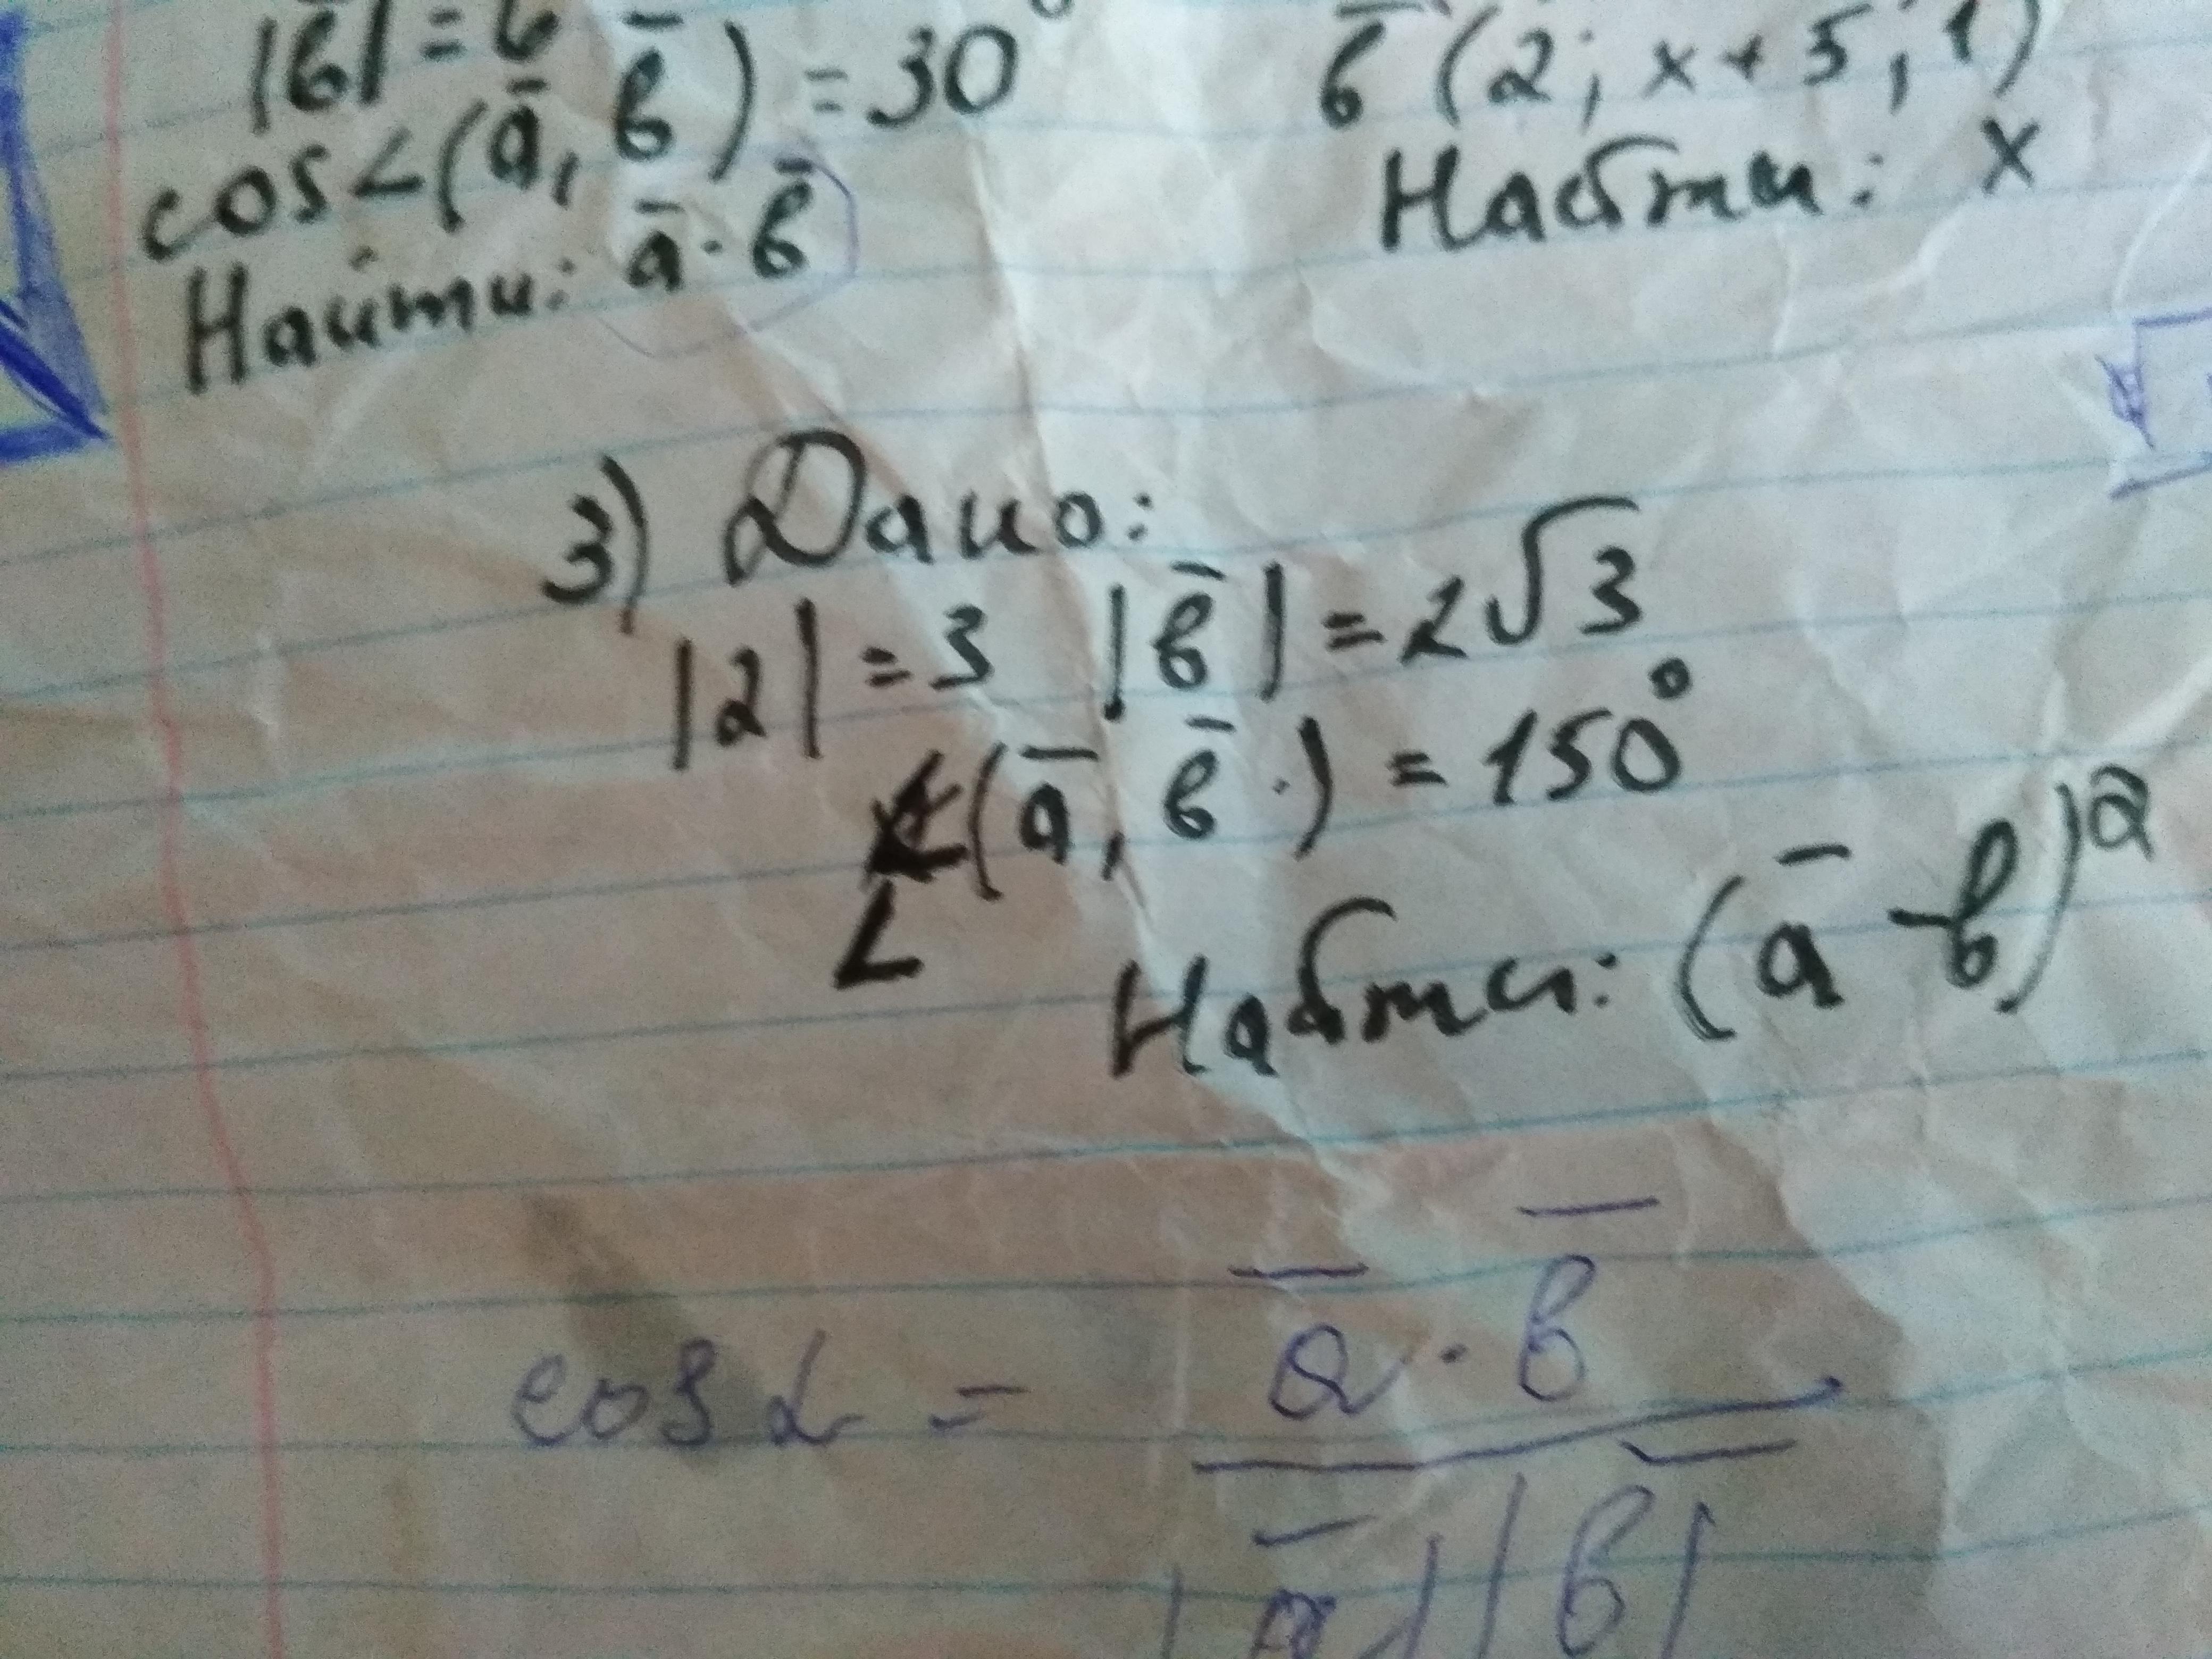 |b̅| = 6
cos∠(a̅, b̅) = 30°
Найти: a̅ · b̅
b̅ (2; x + 5; 1)
Найти: x
3) Дано:
|2| = 3 |b̅| = 2√3
∠(a̅, b̅) = 150°
∠
Найти: (a̅ - b)²
cos α = a̅ · b̅
|a̅| |b̅|